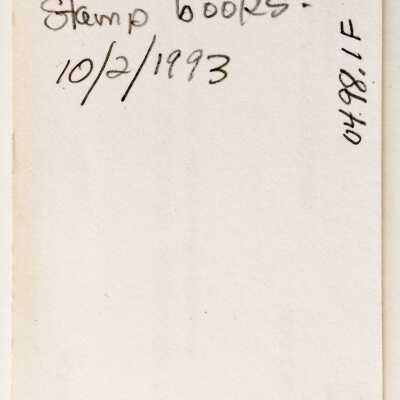 Stamp books.
10/2/1993
0498.1 F